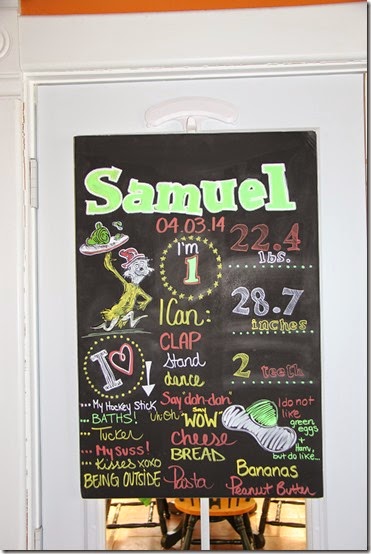 Samuel
04.03.14
I'm
1
22.4
lbs.
28.7
inches
2 teeth
I Can:
CLAP
Stand
dance
Say "dah-dah"
Uh-Oh
Say "WOW"
I ♥
My Hockey Stick
BATHS!
Tucker
My Suss!
Kisses xoxo
BEING OUTSIDE
cheese
BREAD
Pasta
I do not
like
green
eggs
+
Ham,
but do like...
Bananas
Peanut Butter